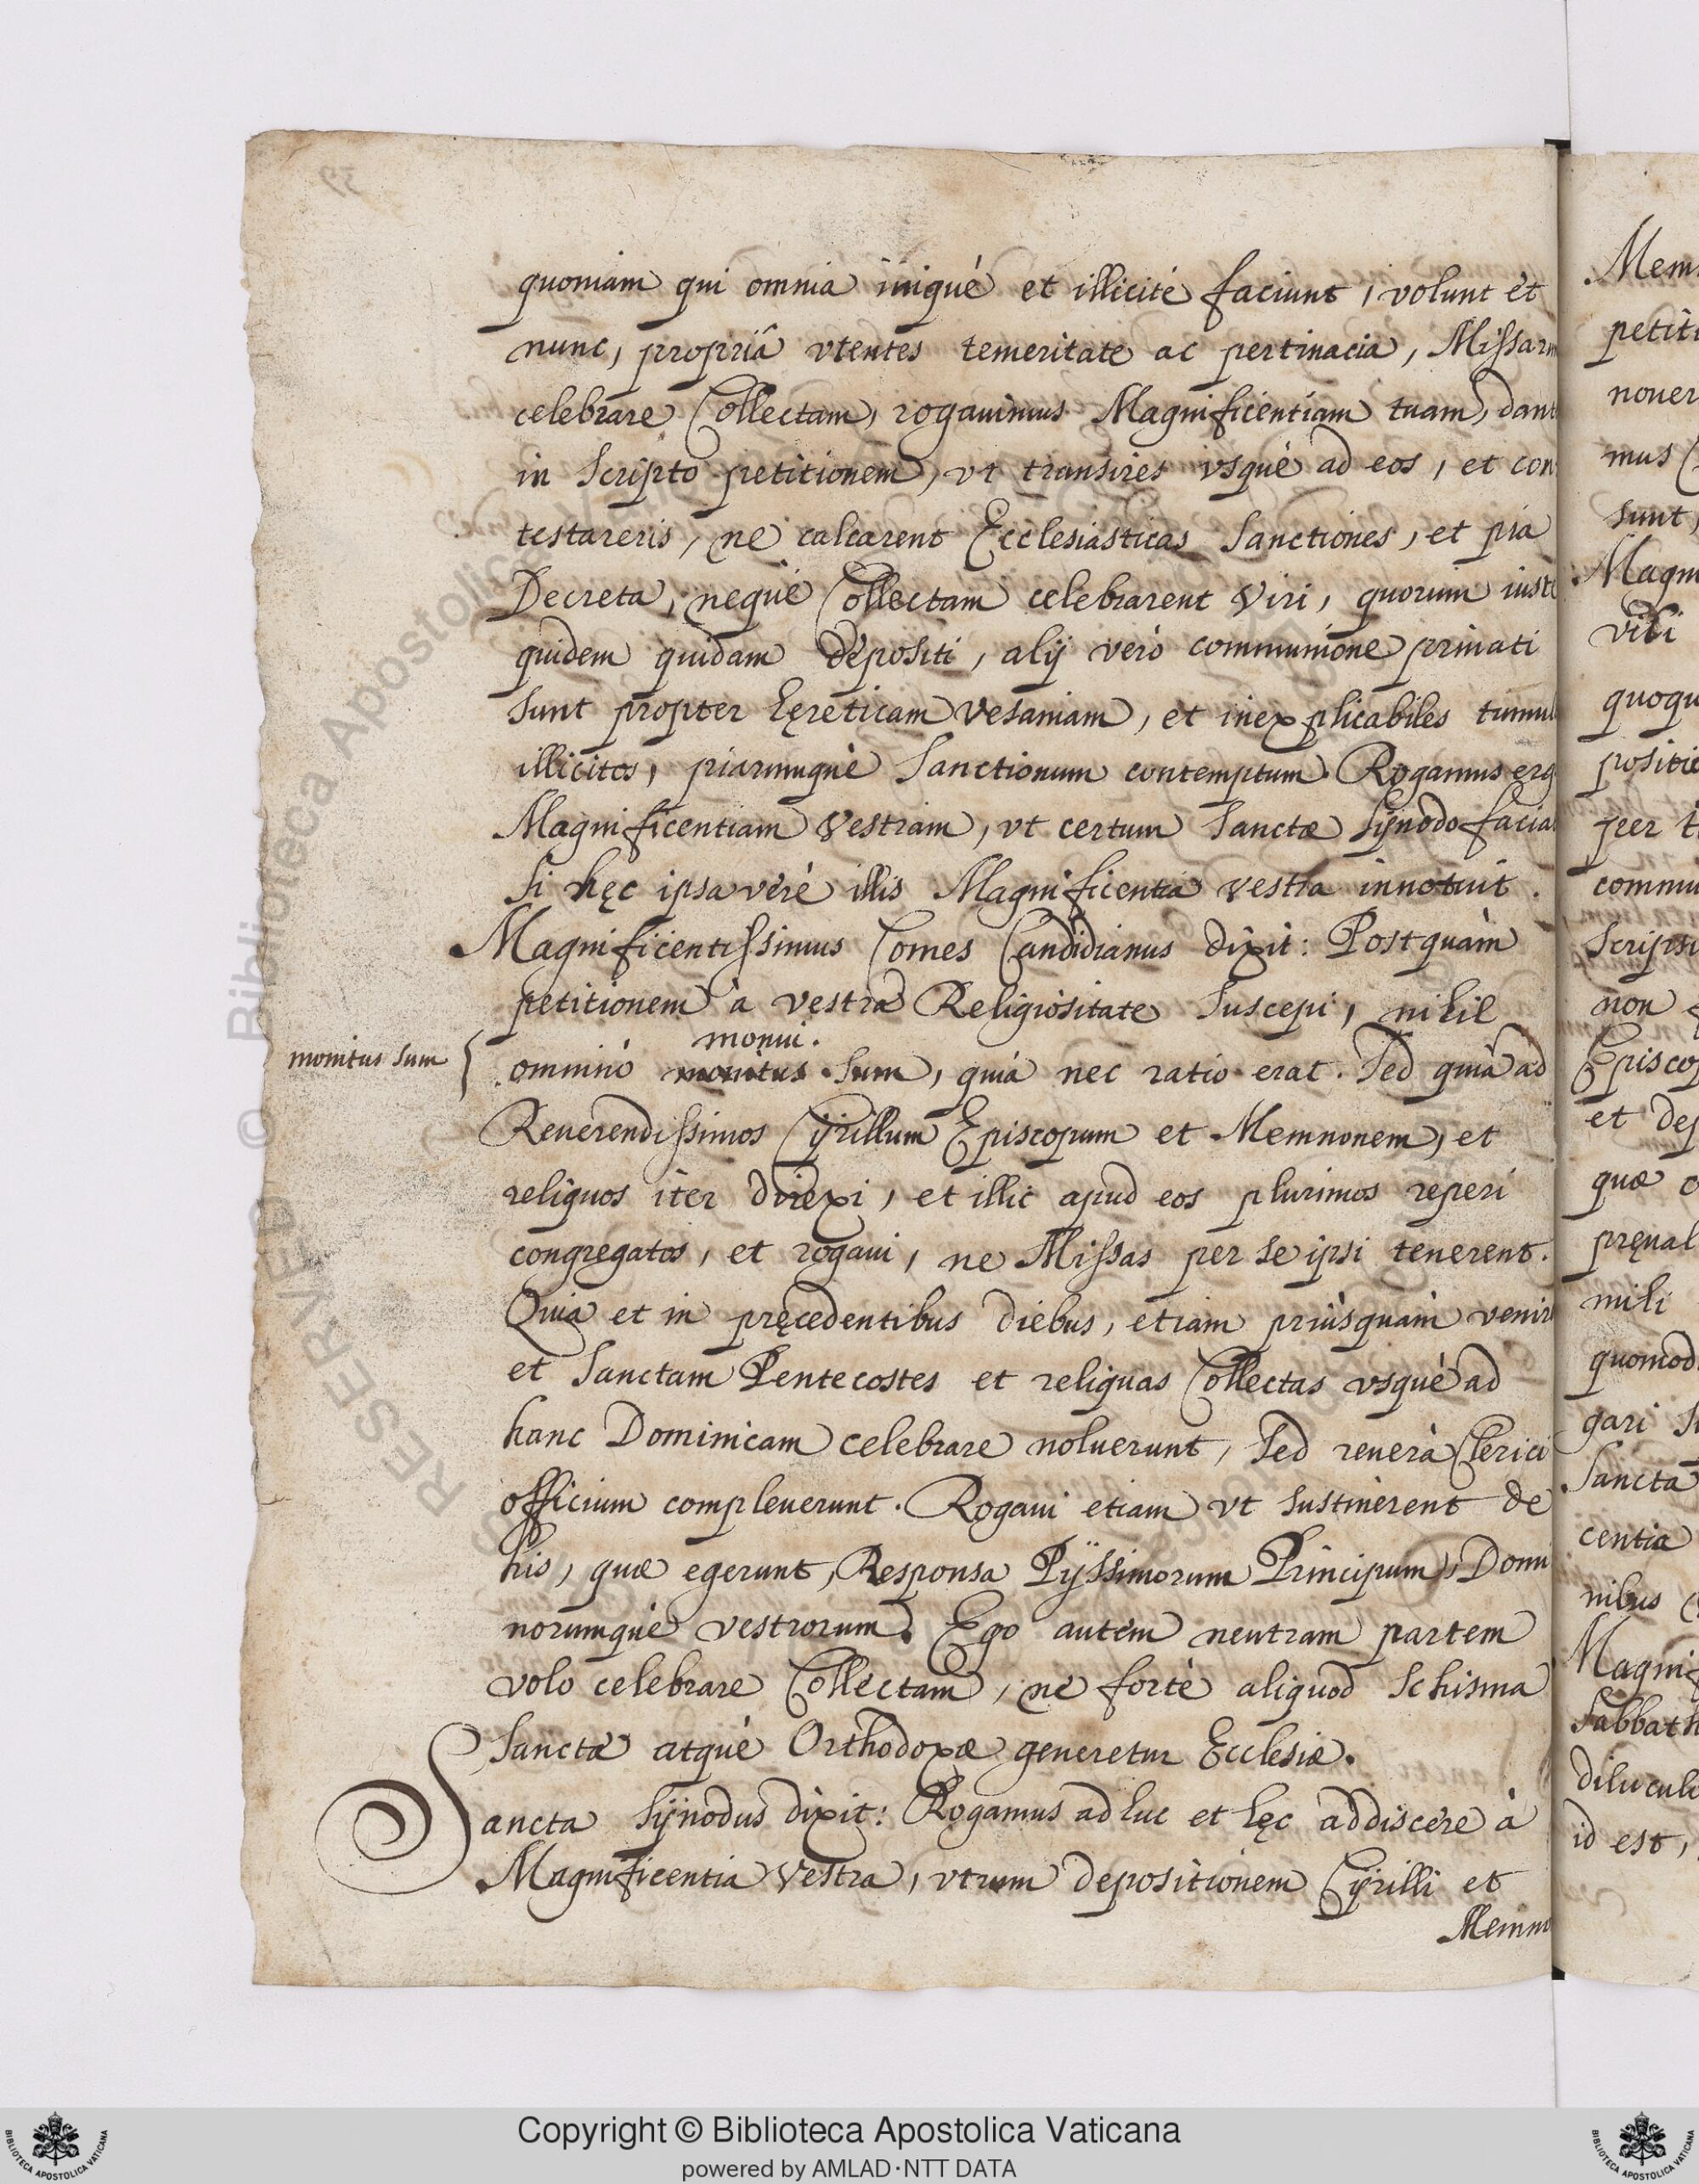 quoniam qui omnia iniquè et illicitè faciunt, volunt et
nunc, propriâ vtentes temeritate ac pertinacia, Missar
celebrare Collectam, rogauimus Magnificentiam tuam, dant
in scripto petitionem, vt transires vsquè ad eos, et con
testareris, ne calcarent Ecclesiasticas Sanctiones, et pia
Decreta, nequè Collectam celebrarent Viri, quorum iuste
quidem quidam depositi, alij verò communione priuati
sunt propter hęreticam vesaniam, et inexplicabiles tumul
illicitos, piarumquè Sanctionum contemptum. Rogamus erg
Magnificentiam Vestram, vt certum Sanctæ Synodo facia
si hęc ipsa verè illis Magnificentia vestra innotuit.
Magnificentissimus Comes Candidianus dixit: Postquàm
petitionem à vestra Religiositate suscepi, nihil
monui.
monitus sum { omninò monitus sum, quià nec ratio erat. Sed quià ad
Reuerendissimos Cÿrillum Episcopum et Memnonem, et
reliquos iter direxi, et illic apud eos plurimos reperi
congregatos, et rogaui, ne Missas per se ipsi tenerent.
Quia et in pręcedentibus diebus, etiam priùsquàm venir
et Sanctam Pentecostes et reliquas Collectas vsquè ad
hanc Dominicam celebrare noluerunt, Sed reuerà Clerici
officium compleuerunt. Rogaui etiam vt sustinerent de
his, quæ egerunt, Responsa Pijssimorum Principum, Domi
norumquè vestrorum. Ego autem neutram partem
volo celebrare Collectam, ne fortè aliquod Schisma
Sanctæ atquè Orthodoxæ generetur Ecclesiæ.
Sancta Sÿnodus dixit: Rogamus adhuc et hęc addiscere à
Magnificentia Vestra, vtrum depositionem Cÿrilli et
Memno
Mem
petiti
nouer
mus
sunt,
Magn
vidi
quoqu
positio
per
commu
scripsi
non
Episcop
et dep
quæ
pręual
mihi
quomod
gari
Sancta
centia
nibus
Magnif
Sabbath
dilucul
id est,
© Biblioteca Apostolica Vaticana
RESERVED
Copyright © Biblioteca Apostolica Vaticana
powered by AMLAD·NTT DATA
BIBLIOTECA APOSTOLICA VATICANA
BIBLIOTECA APOSTOLICA VATICANA